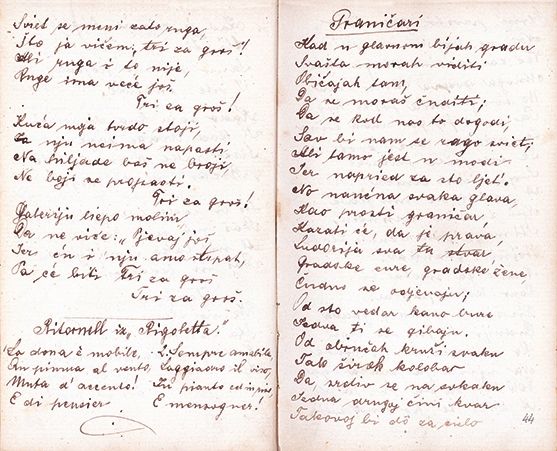 Sviet se meni zato ruga,
Što ja vičem, tri za groš!
Ali ruga i to nije,
Ruge ima veće još.
Tri za groš!
Kuća moja tvrdo stoji,
Za nju neima napasti
Na hiljade baš ne broji,
Ne boji se propasti.
Tri za groš!
Galeriju liepo molim
Da ne viče: „Pjevaj još
Jer ću i nju amo strpat,
Pa će biti Tri za groš
Tri za groš.
Ritornell iz „Rigoletta."
La dona è mobile,
Qu piuma al vento,
Muta d' accento!
E di pensier
2. Sempre amabile
Laggiadro il viso,
In pianto ed in riso,
E mensogner!
Graničari
Kad u glavnom bijah gradu
Svašta morah viditi
Običajah tam,
Da se moraš čuditi;
Da se kod nas to dogodi,
Sav bi nam se rago sviet;
Ali tamo jest u modi
Jer napried za sto ljet.
No naučna svaka glava,
Kao prosti graničar
Kazati će, da je prava,
Ludorija sva ta stvar.
Gradske cure, gradske žene,
Čudno se odjevaju;
Od sto vedar kano bure
Jedva ti se gibaju.
Od obručah kruži svaku
Tako širok kolobar
Da, srdiv se na svkaku
Jedna drugoj čini kvar
Takovoj bi dô za cielo
44